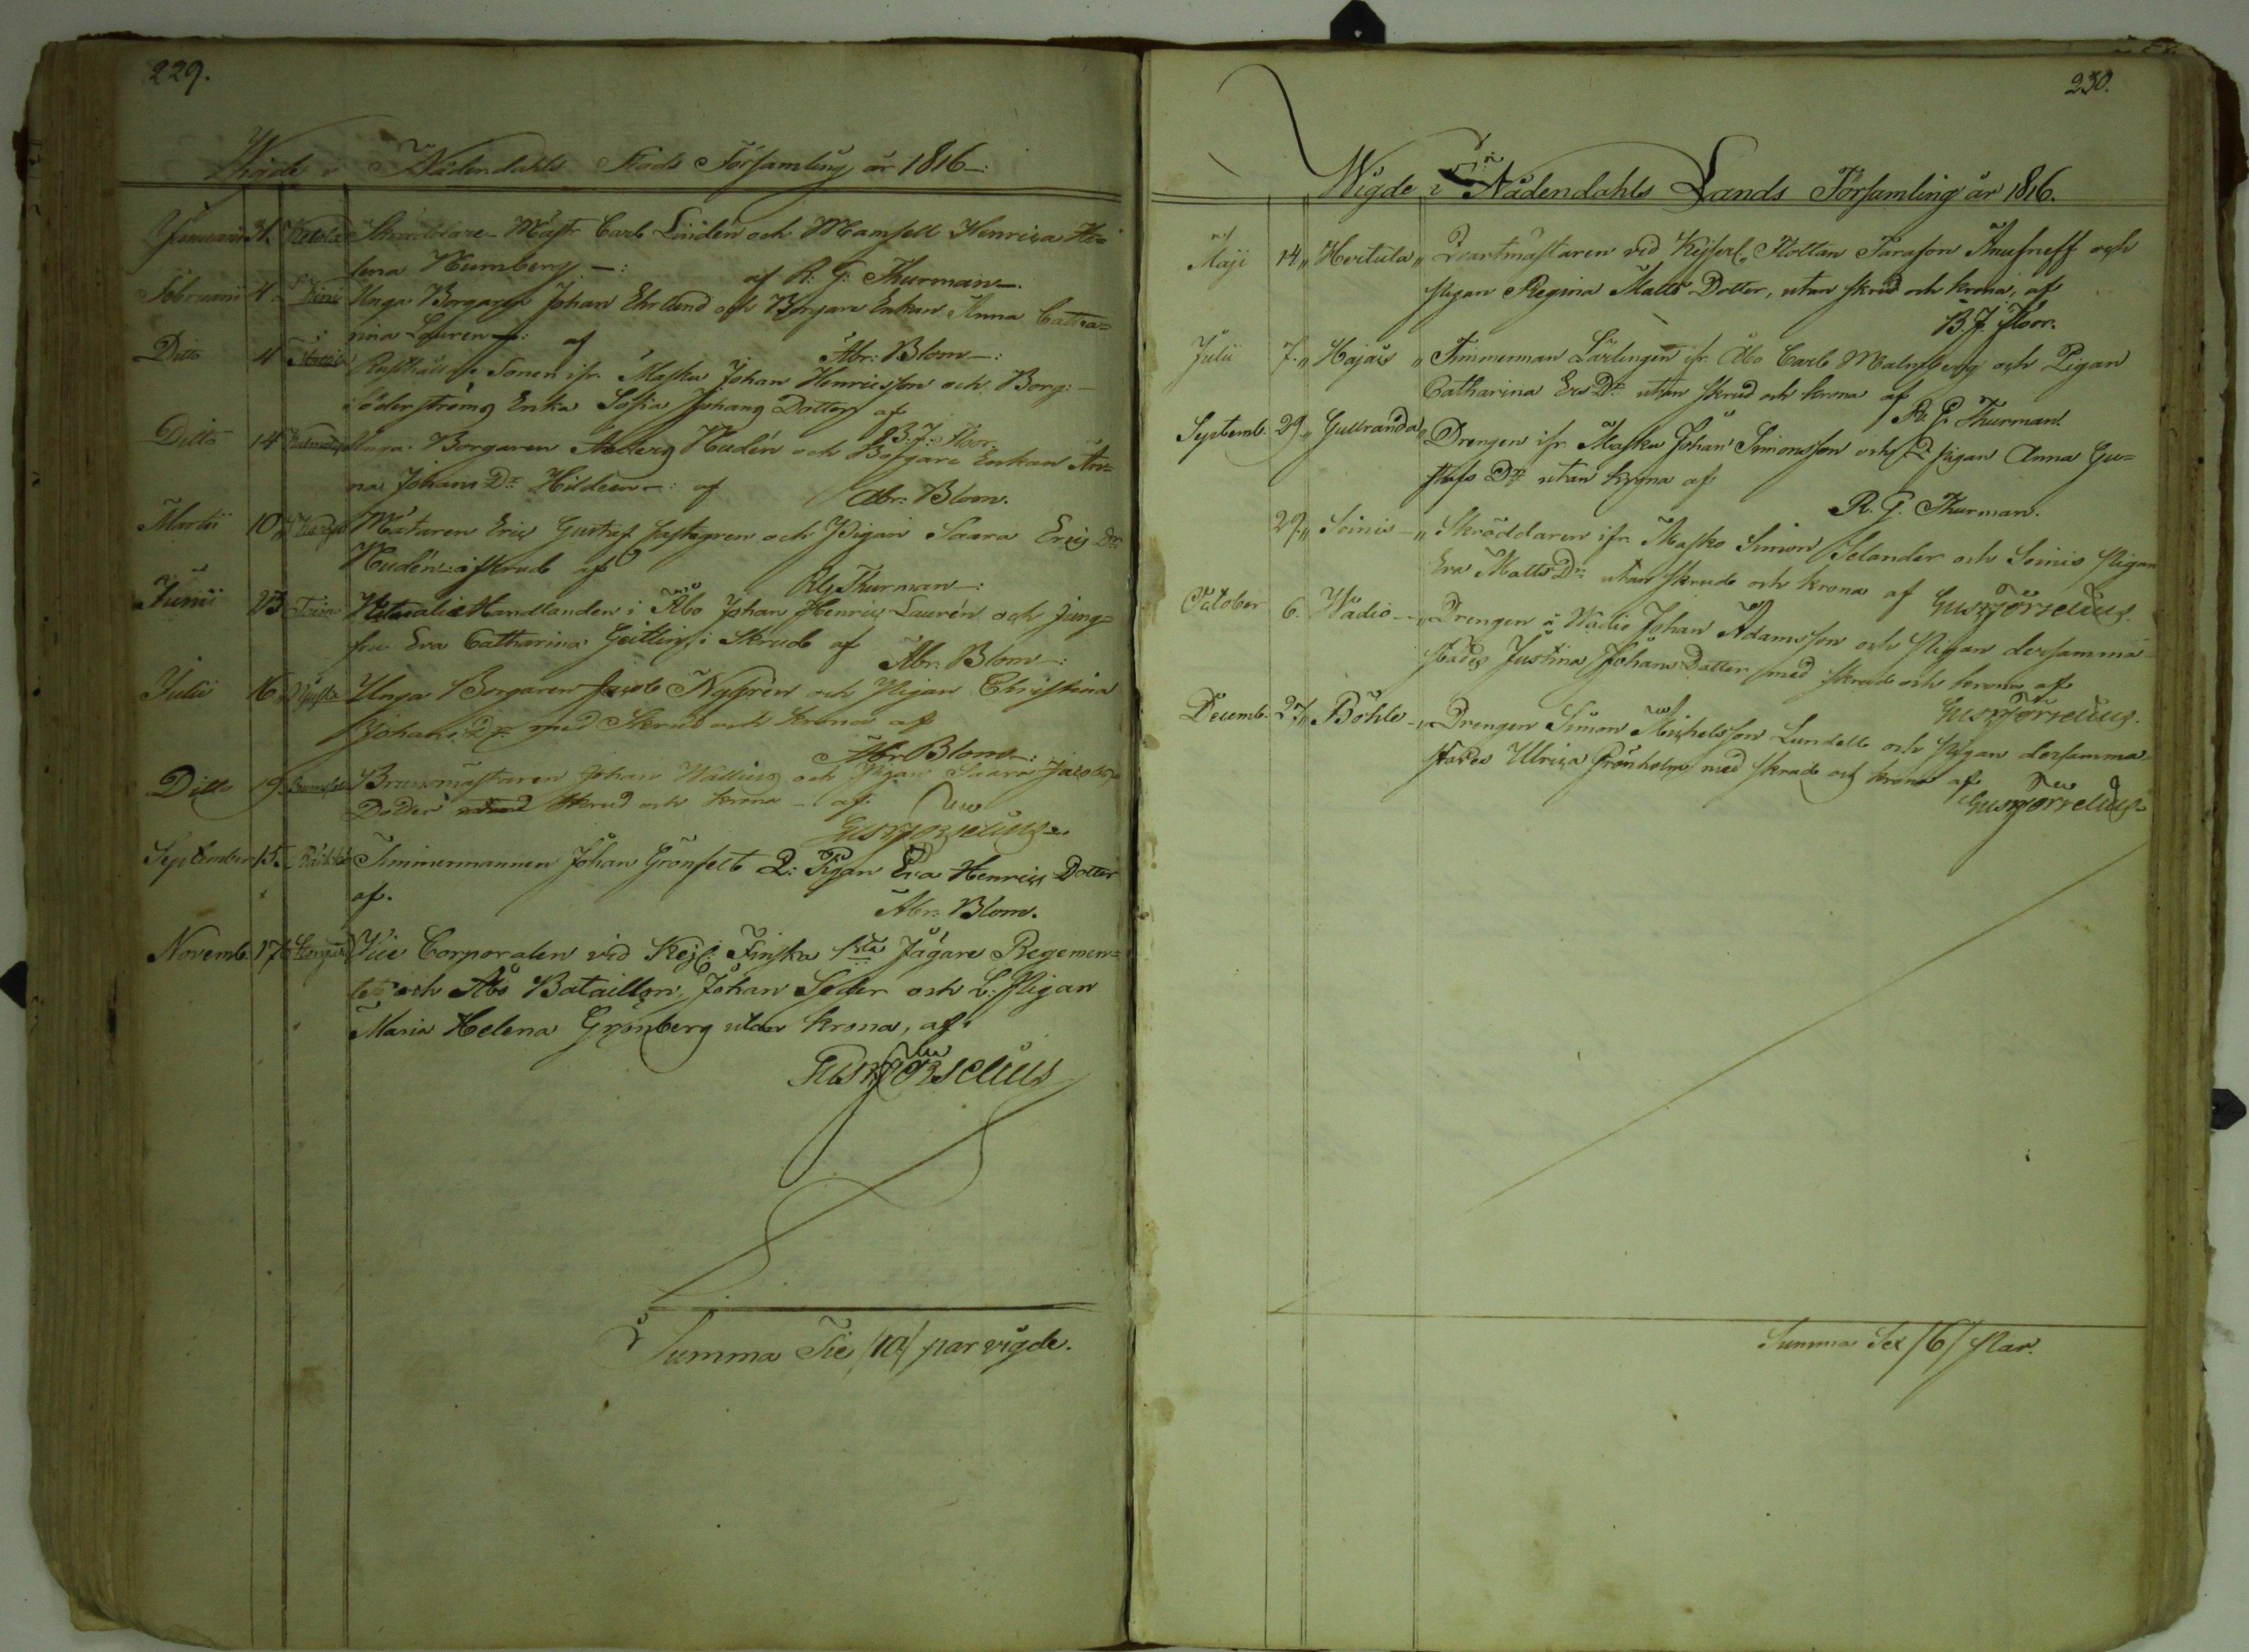 229.
Wigde i Nådendahls Stads Församling år 1816-:
Januarii 31. Skräddare Mäst: Carl Lindén och Mamsell Henrica He=
lena Humberg -: af R. G. Thurman-.
Februarii 4. Unga Borgaren Johan Ehrlund och Borgare Enkan Anna Catha=
rina Lauren -: af Abr: Blom-:
Ditto 4 Rusthålls Sonen ifr. Masku Johan Henricsson och Borg:
Söderströms Enka Sofia Johans Dotter af
B. J. Floor.
Ditto 14 Unga Borgaren Anders Nudén och Borgare Enkan An=
na Johans Dr Hildeen -: af Abr: Blom.
Martii 10 Mätaren Eric Gustaf Fastegren och Pigan Saara Erics Dr
Nudén i skrud af
RG Thurman-:
Junii 23 Victualie Handlanden i Åbo Johan Henric Laurén och Jung=
fru Eva Catharina Geitlin, i Skrud af Abr: Blom-:
Julii 16 Unga Borgaren Jacob Nygrén och Pigan Christina
Johans Dr med Skrud och krona af
Abr Blom-:
Ditto 9 Brunmästaren Johan Wallius och Pigan Saara Jacobs
Dotter Skrud och krona - af
Gust Törselius.
September 15. Timmermannen Johan Grönfelt Q: Pigan Eva Henrics Dotter
af. Abr: Blom.
Novemb. 17 Vice Corporalen vid Kejs: Finska 1sta Jägare Regemen=
tet och Åbo Bataillon, Johan Seder och L: Pigan
Maria Helena Grönberg utan krona, af
Gust Törselius
Summa Tie /10/ par vigde.
230.
Wigde i Nådendahls Lands Församling år 1816.
Maji 14 „ Hertula „ Qvartmästaren vid Kejserl. Flottan Tarason Anufneff och
Pigan Regina Matts Dotter, utan skrud och krona, af
B. J. Floor.
Julii 7. „ Hajais „ Timmerman Lärlingen ifr. Åbo Carl Malmberg och Pigan
Catharina Ers Dr utan skrud och krona af
R. G. Thurman.
Septemb. 29 „ Gullranda „ Drengen ifr. Masku Johan Simonsson och Pigan Anna Gu=
stafs Dr utan krona af
R. G. Thurman.
29. „ Soinis - „ Skräddaren ifr. Masko Simon Selander och Soinis Pigan
Eva Matts Dr utan skrud och krona af Gust Törselius.
October 6. Wädio - „ Drengen i Wädio Johan Adamsson och Pigan dersamma=
städes Justina Johans Dotter med skrud och krona af
Gust Törselius.
Decemb. 27 „ Böhle - „ Drengen Simon Michelsson Lundell och Pigan dersamma=
städes Ulrica Grönholm med skrud och krona af
Gust Törselius
Summa Sex /6/ Par.